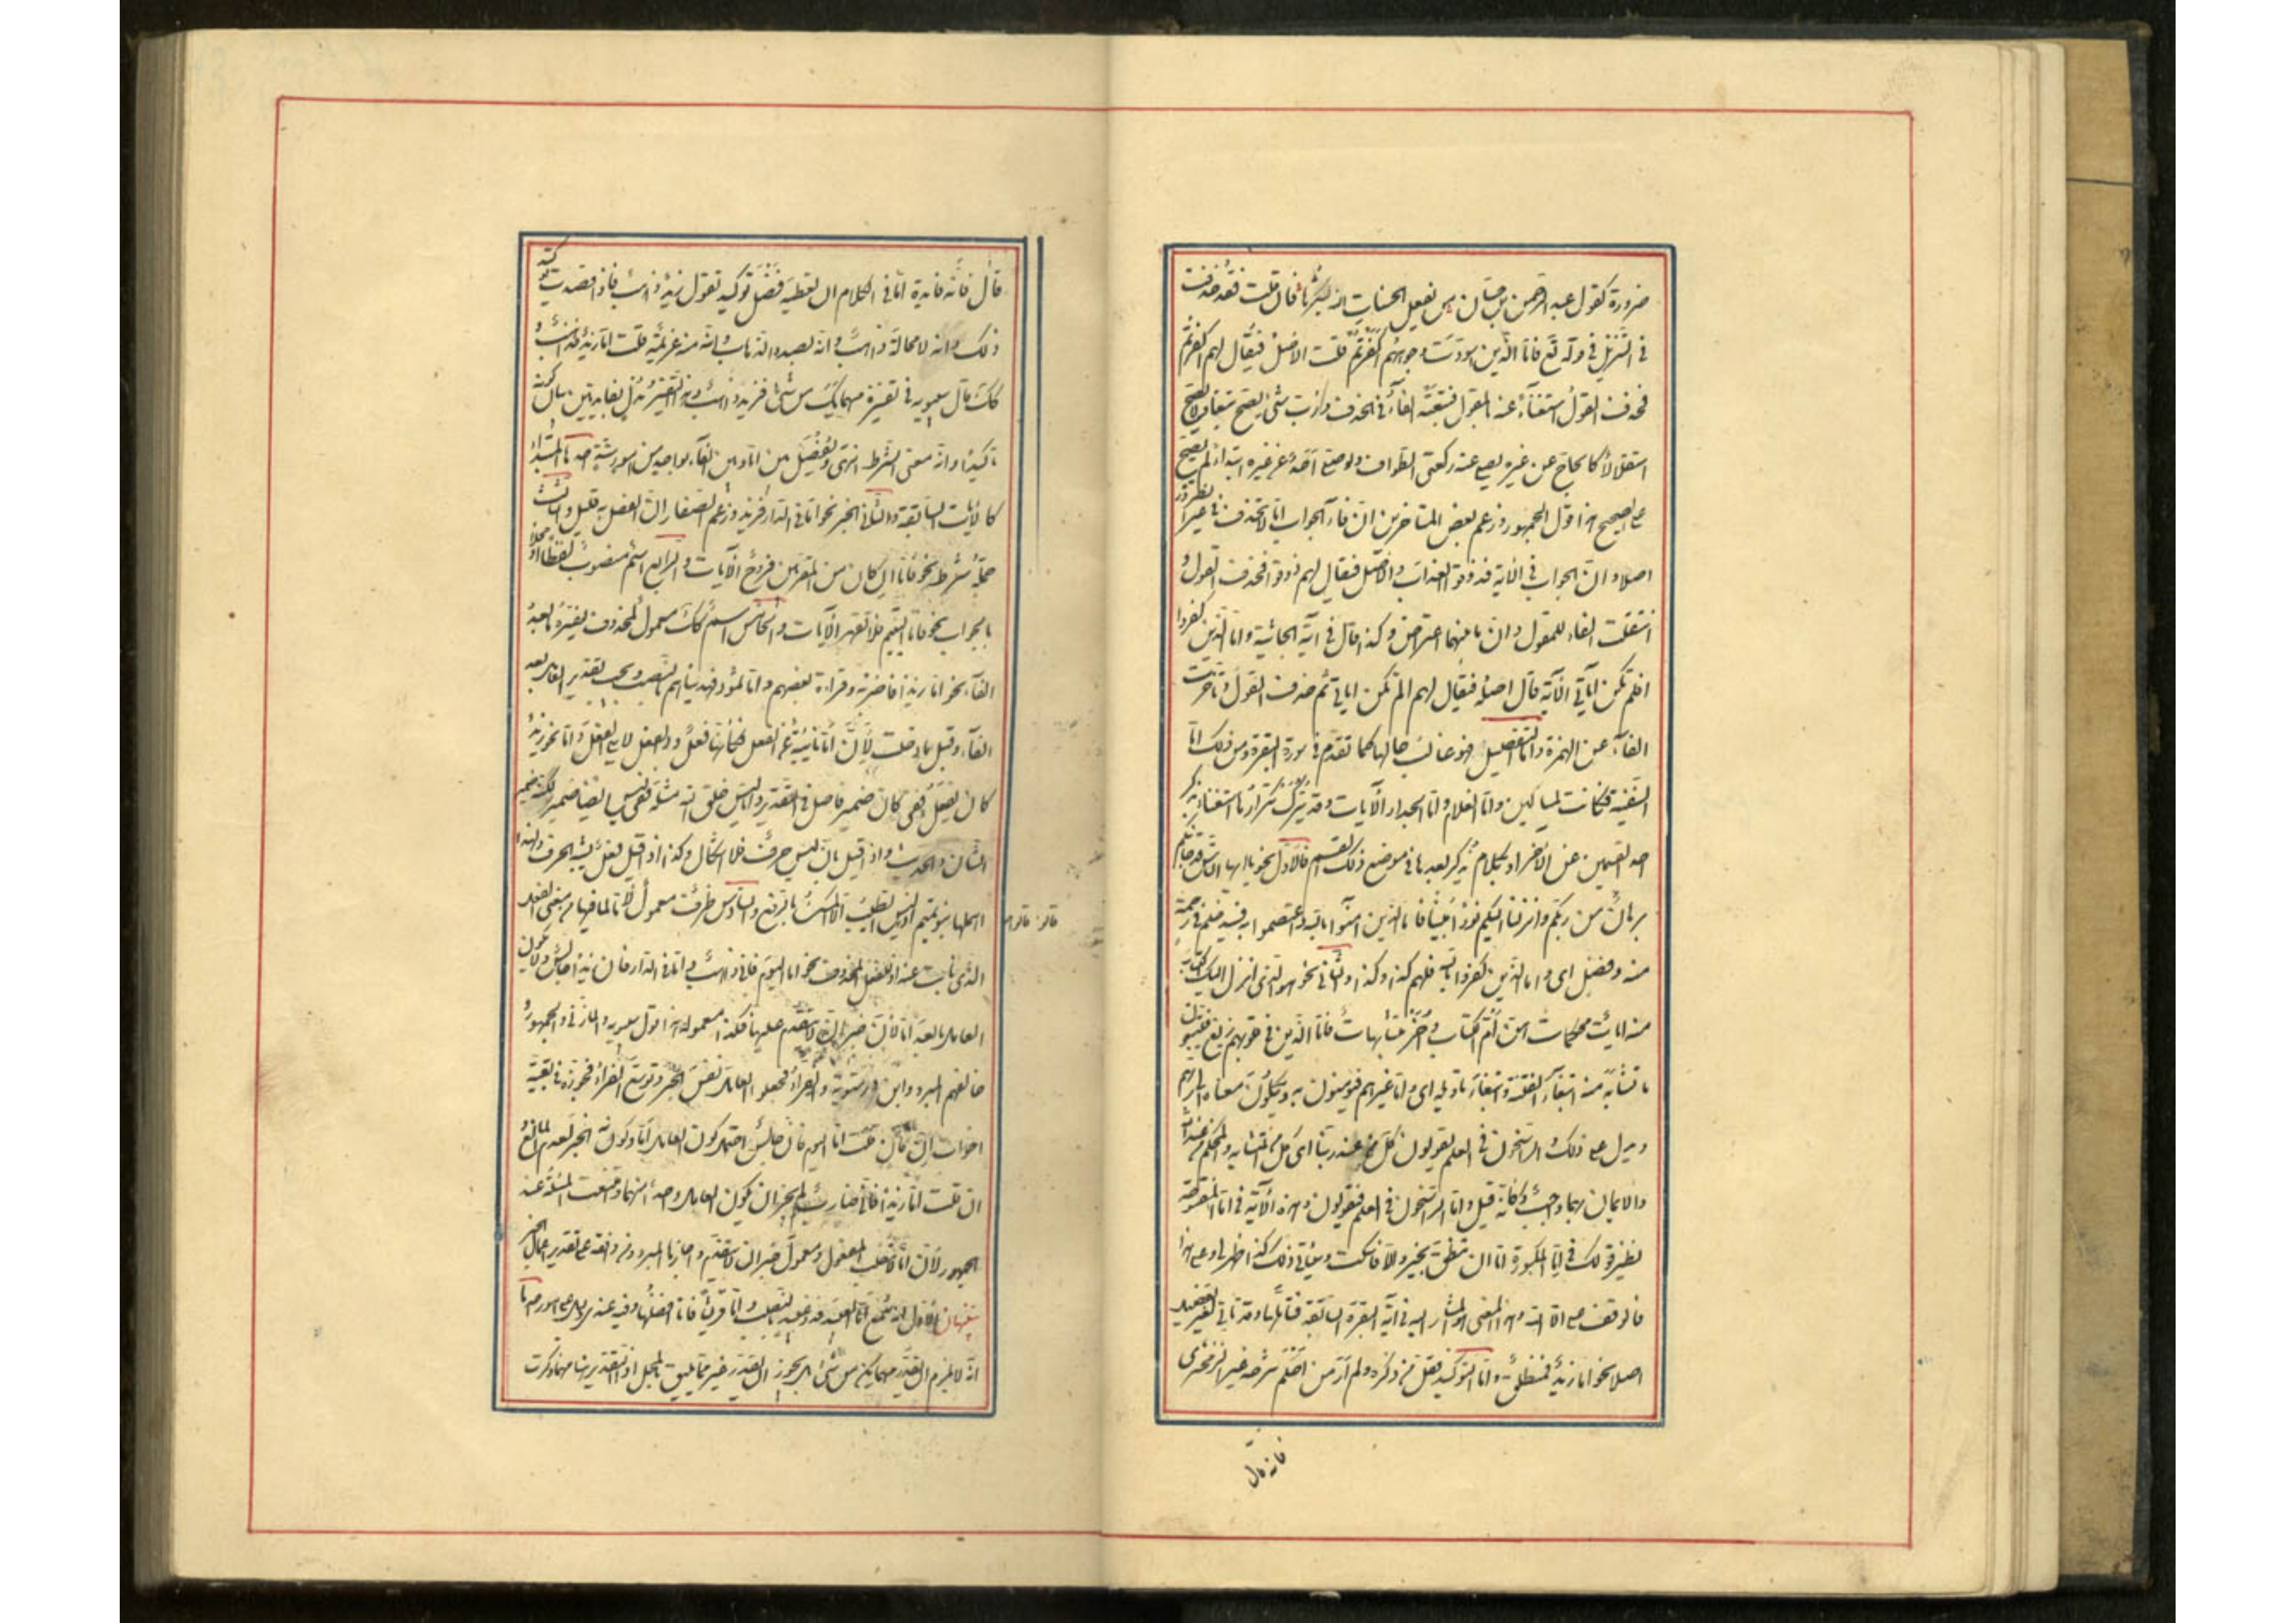 ضرورة كقول عبد الرحمن بن حسان من يفعل الحسنات الله يشكرها فان قلت فقد حذفت
في التنزيل في قوله تع فاما الذين اسودت وجوههم اكفرتم قلت الاصل فيقال لهم اكفرتم
فحذف القول استغناء عنه بالمقول فتبعته الفاء في الحذف ورب شئ يصح تبعا ولا يصح
استقلالا كالحاج عن غيره يصلي عنه ركعتي الطواف ولو صلى احد عن غيره ابتداء لم يصح
على الصحيح هذا قول الجمهور وزعم بعض المتاخرين ان فاء جواب اما لا تحذف في غير الضرورة
اصلا وان الجواب في الاية فذوقوا العذاب والاصل فيقال لهم ذوقوا فحذف القول و
انتقلت الفاء للمقول وان ما بينهما اعتراض وكذا قال في آية الجاثية واما الذين كفروا
افلم تكن اياتي الآية قال اصله فيقال لهم الم تكن اياتي ثم حذف القول وتاخرت
الفاء عن الهمزة واما التفصيل فهو غالب حالها كما تقدم في سورة البقرة ومن ذلك اما
السفينة فكانت لمساكين واما الغلام واما الجدار الآيات وقد يترك تكرارها استغناء بذكر
احد القسمين عن الآخر او بكلام يذكر بعدها في موضع ذلك القسم فالاول نحو يا ايها الناس قد جاءكم
برهان من ربكم وانزلنا اليكم نورا مبينا فاما الذين امنوا بالله واعتصموا به فسيدخلهم في رحمة
منه وفضل اي واما الذين كفروا بالله فلهم كذا وكذا والثاني نحو هو الذي انزل اليك الكتاب
منه ايات محكمات هن ام الكتاب واخر متشابهات فاما الذين في قلوبهم زيغ فيتبعون
ما تشابه منه ابتغاء الفتنة وابتغاء تاويله اي واما غيرهم فيؤمنون به ويكلون معناه الى ربهم
ويدل على ذلك والراسخون في العلم يقولون كل من عند ربنا اي كل من المتشابه والمحكم من عند الله
والايمان بهما واجب وكانه قيل واما الراسخون في العلم فيقولون وهذه الآية في اما المفتوحة
نظير قولك في اما المكسورة اما ان تنطق بخير والا فاسكت وسياتي ذلك كذا ظهر لي وعلى هذا
فالوقف على الا الله وهذا المعنى هو المشار اليه في آية البقرة السابقة فتاملها وقد تاتي لغير تفصيل
اصلا نحو اما زيد فمنطلق واما التوكيد فقل من ذكره ولم ار من احكم شرحه غير الزمخشري
فانه قال
قال فانه فايدة اما في الكلام ان تعطيه فضل توكيد تقول زيد ذاهب فاذا قصدت توكيد
ذلك وانه لا محالة ذاهب وانه بصدد الذهاب وانه منه عزيمة قلت اما زيد فذاهب و
كك قال سيبويه في تفسيره مهما يكن من شئ فزيد ذاهب وهذا التفسير مدل بفايدتين بيان كونه
تاكيدا وانه معنى الشرط انتهى ويفصل بين اما وبين الفاء بواحد من امور ستة احدها المبتداء
كالآيات السابقة والثاني الخبر نحو اما في الدار فزيد وزعم الصفار ان الفصل به قليل والثالث
جملة شرط نحو فاما ان كان من المقربين فروح الآيات والرابع اسم منصوب لفظا او محلا
بالجواب نحو فاما اليتيم فلا تقهر الآيات والخامس اسم كك معمول لمحذوف يفسره ما بعد
الفاء نحو اما زيدا فاضربه وقراءة بعضهم واما ثمود فهديناهم بالنصب ويجب تقدير العامل بعد
الفاء وقبل ما دخلت لان اما نائبة عن الفعل فكانها فعل والفعل لا يلي الفعل واما نحو زيد
كان يفعل ففي كان ضمير فاصل في التقدير واما ليس خلق الله مثله ففي ليس ايضا ضمير لكنه ضمير
الشان والحديث واذا قيل بان ليس حرف فلا اشكال وكذا اذا قيل فعل يشبه الحرف ولهذا
اهملها بنو تميم اذ قالوا ليس الطيب الا المسك بالرفع والسادس ظرف معمول لاما لما فيها من معنى الفعل
الذي نابت عنه او للفعل المحذوف نحو اما اليوم فاني ذاهب واما في الدار فان زيدا جالس ولا يكون
العامل ما بعد الفاء لان خبر ان لا يتقدم عليها فكذا معموله هذا قول سيبويه والمازني والجمهور و
خالفهم المبرد وابن درستويه والفراء فجعلوا العامل نفس الخبر وتوسع الفراء فجوزه في بقية
اخوات ان فان قلت اما اليوم فانا جالس احتمل كون العامل اما وكونه الخبر لعدم المانع
ان قلت اما زيدا فاني ضارب لم يجز ان يكون العامل واحدا منهما وامتنعت المسئلة عند
الجمهور لان اما لا تنصب المفعول ومعمول خبر ان لا يتقدم واجازها المبرد ومن وافقه على تقدير اعمال الخبر
تنبيهان الاول انه سمع اما العبيد فذو عبيد بالنصب واما قريشا فانا افضلها وفيه عندي دليل على امور احدها
انه لا يلزم ان يقدر مهما يكن من شئ بل يجوز ان يقدر غير مما يليق بالمحل اذ التقدير هنا مهما ذكرت